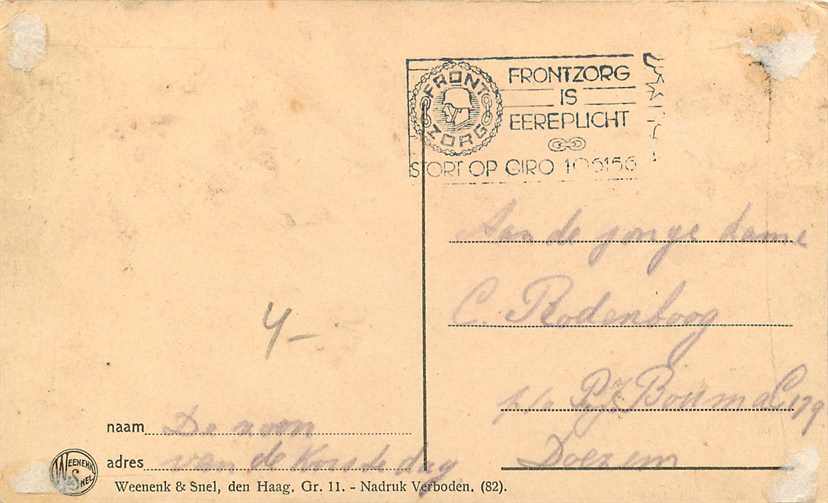 FRONT
ZORG
FRONTZORG
IS
EEREPLICHT
STORT OP GIRO 106156
Aan de jonge dame
C. Rodenboog
p/a P.J. Bouma C 179
Doezum
4-
naam De zoon
adres van de koude dag
WEENENK
& SNEL
Weenenk & Snel, den Haag. Gr. 11. - Nadruk Verboden. (82).